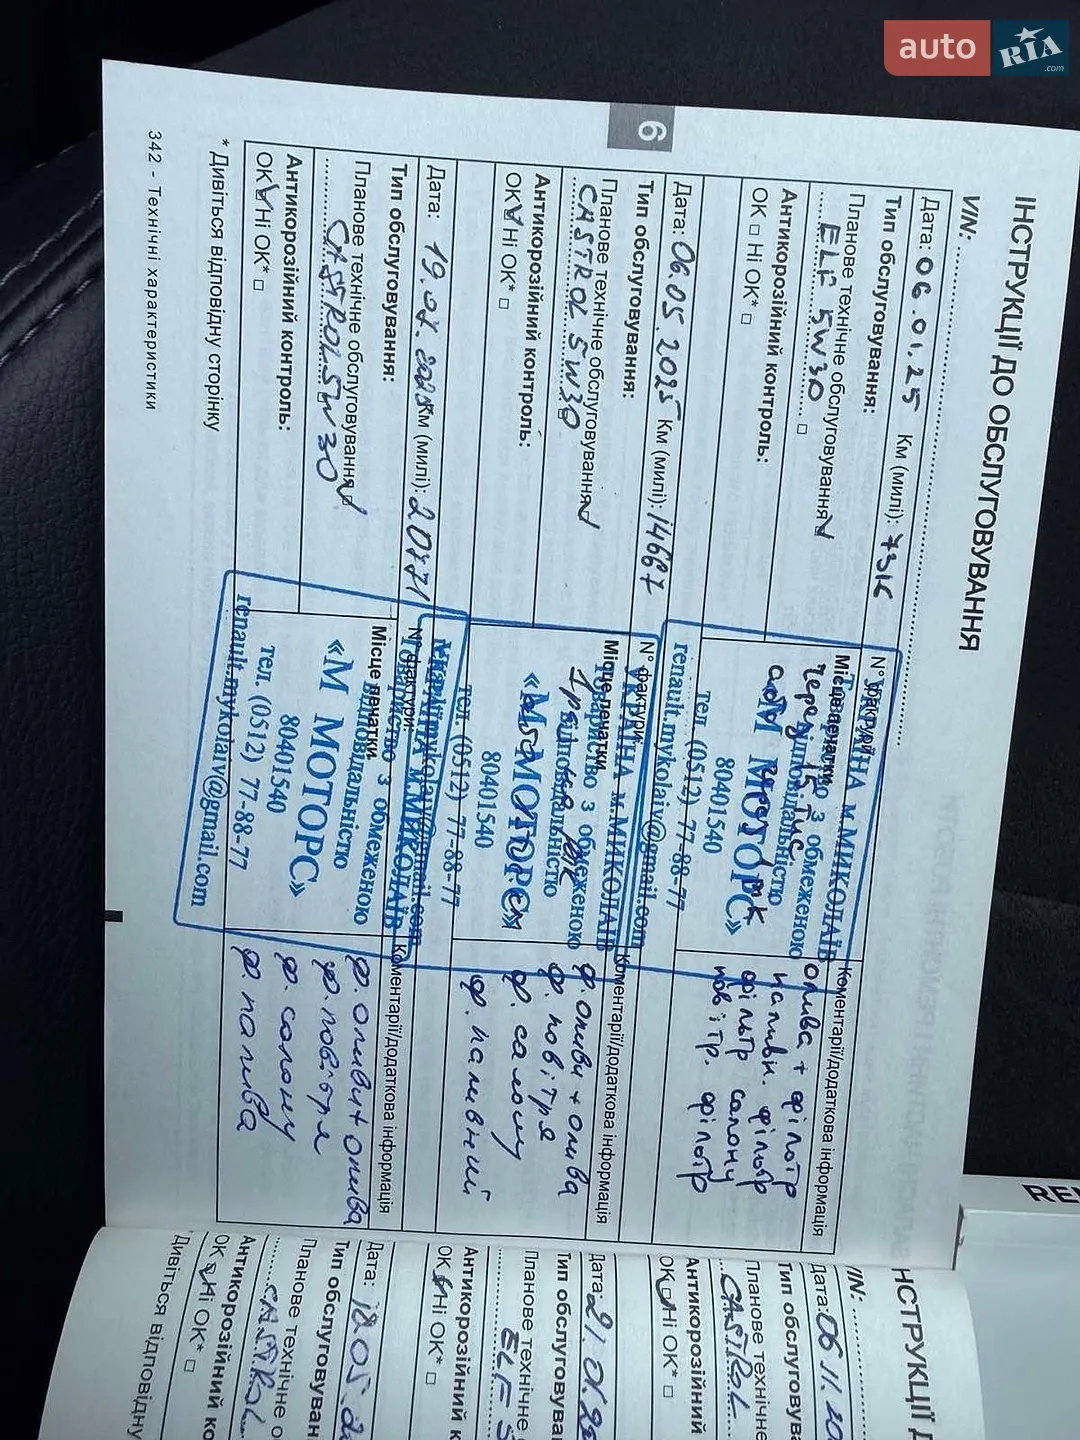 auto RIA.com
ІНСТРУКЦІЇ ДО ОБСЛУГОВУВАННЯ
VIN:
Дата: 06.01.25 Км (милі):
Тип обслуговування:
Планове технічне обслуговування
ELF 5W30
Антикорозійний контроль:
OK □ Ні OK* □
N° фактури:
Місце печатки
УКРАЇНА м.МИКОЛАЇВ
через 15 тис
80401540
тел. (0512) 77-88-77
renault.mykolaiv@gmail.com
Коментарі/додаткова інформація
олива + фільтр
паливн. фільтр
фільтр салону
повітр. фільтр
Дата: 06.05.2025 Км (милі): 14667
Тип обслуговування:
Планове технічне обслуговування
CASTROL 5W30
Антикорозійний контроль:
OK Ні OK* □
N° фактури:
Місце печатки
УКРАЇНА м.МИКОЛАЇВ
Товариство з обмеженою
відповідальністю
«М МОТОРС»
80401540
тел. (0512) 77-88-77
Коментарі/додаткова інформація
ф. оливи + олива
ф. повітря
ф. салону
ф. паливний
Дата: Км (милі): 20771
Тип обслуговування:
Планове технічне обслуговування
CASTROL 5W30
Антикорозійний контроль:
OK Ні OK* □
N° фактури:
Місце печатки
м.МИКОЛАЇВ
Товариство з обмеженою
відповідальністю
«М МОТОРС»
80401540
тел. (0512) 77-88-77
renault.mykolaiv@gmail.com
Коментарі/додаткова інформація
ф. оливи + олива
ф. повітря
ф. салону
ф. палива
* Дивіться відповідну сторінку
342 - Технічні характеристики
6
REN
НСТРУКЦІЇ Д
VIN:
Дата: 06.11.20
Тип обслугову
Планове технічне
CASTROL
Антикорозійний
OK Ні OK* □
Дата:
Тип обслугову
Планове технічне
ELF 5
Антикорозійний к
OK Ні OK* □
Дата: 18.05.2
Тип обслуговуван
Планове технічне о
CASTROL
Антикорозійний ко
OK Ні OK* □
Дивіться відповідну